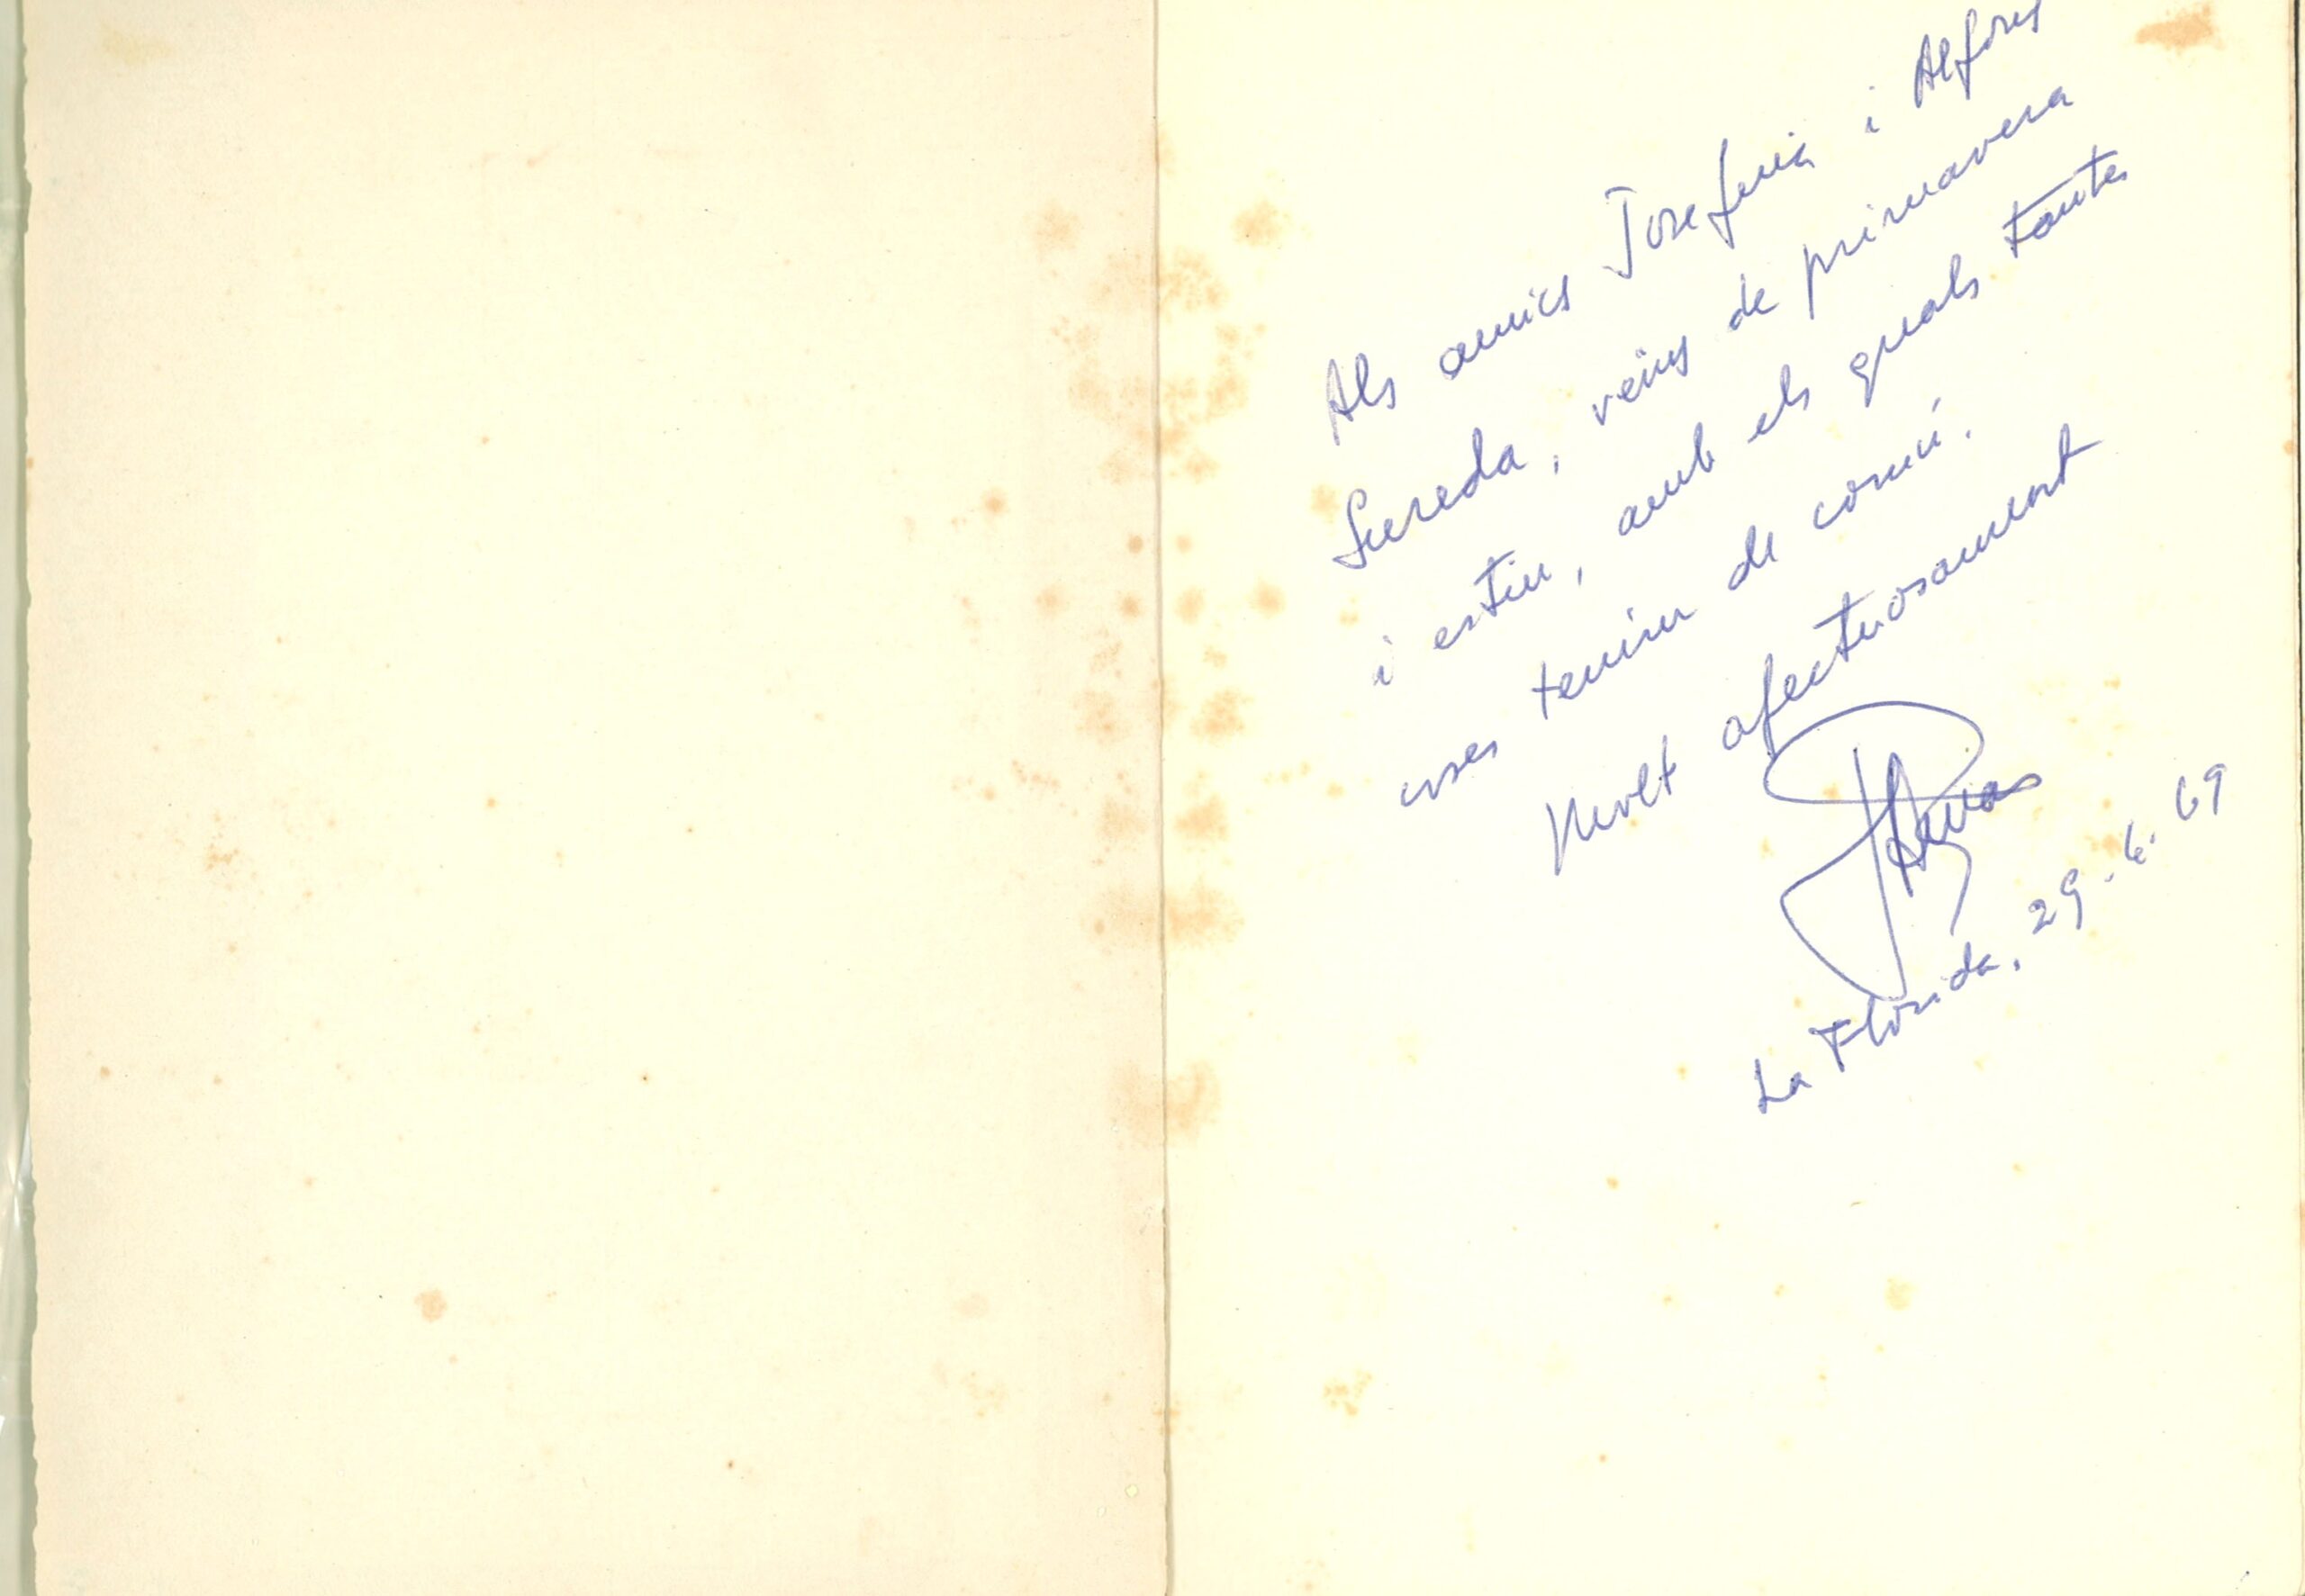 Als amics Josefina i Alfons
Sureda, veïns de primavera
i estiu, amb els quals tantes
coses tenim de comú.
Molt afectuosament
La Florida, 29.6.69